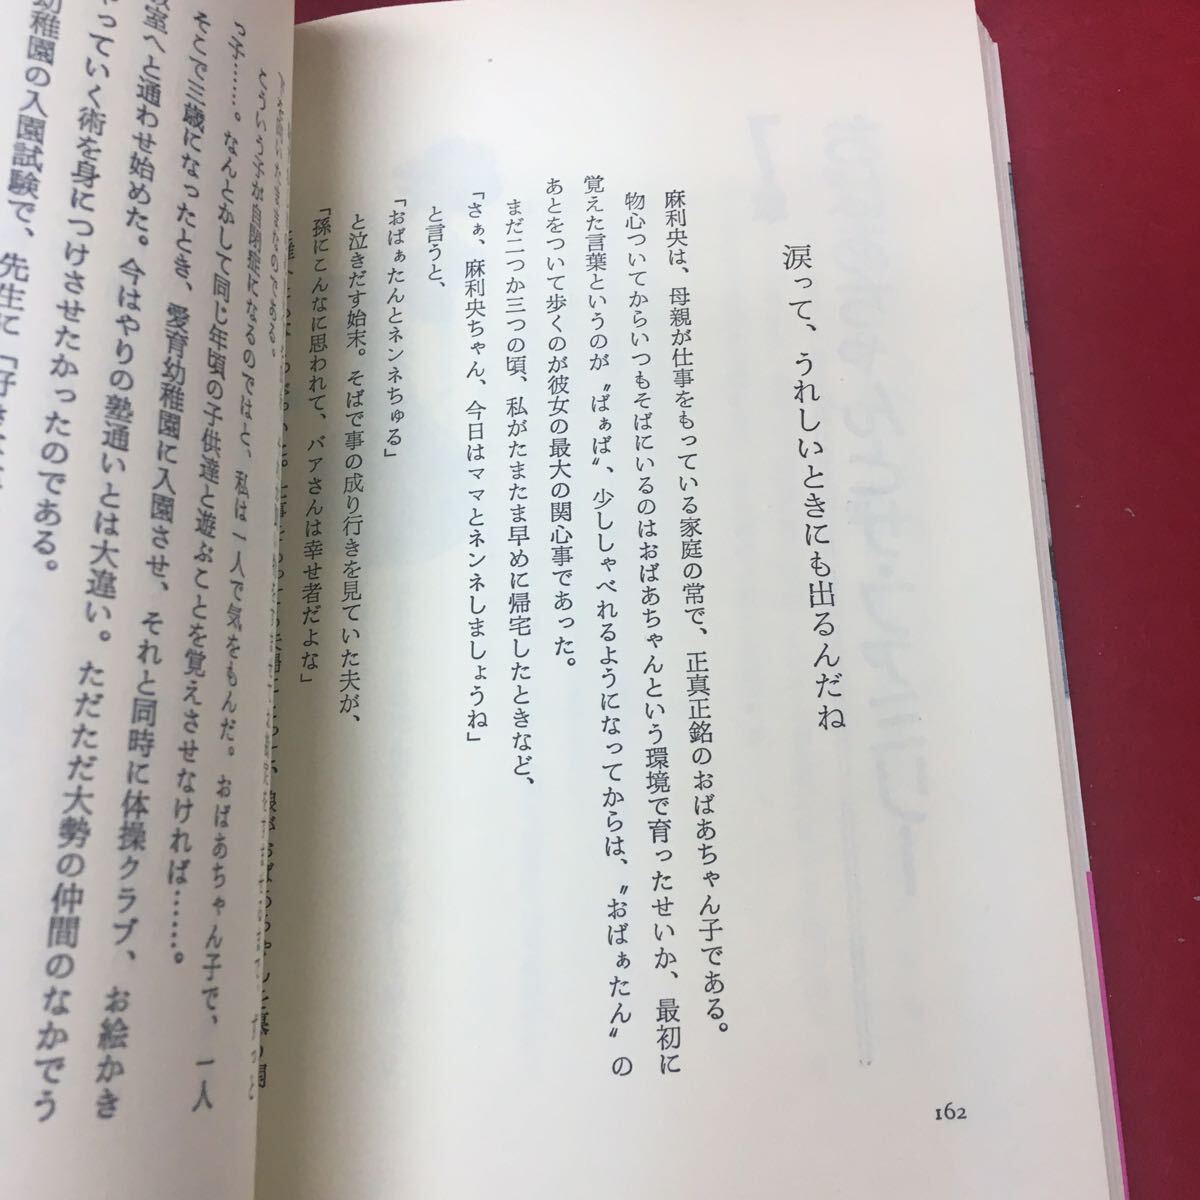 涙って、うれしいときにも出るんだね
麻利央は、母親が仕事をもっている家庭の常で、正真正銘のおばあちゃん子である。
物心ついてからいつもそばにいるのはおばあちゃんという環境で育ったせいか、最初に
覚えた言葉というのが〝ばぁば〟、少ししゃべれるようになってからは、〝おばぁたん〟の
あとをついて歩くのが彼女の最大の関心事であった。
まだ二つか三つの頃、私がたまたま早めに帰宅したときなど、
「さぁ、麻利央ちゃん、今日はママとネンネしましょうね」
と言うと、
「おばぁたんとネンネちゅる」
と泣きだす始末。そばで事の成り行きを見ていた夫が、
「孫にこんなに思われて、バアさんは幸せ者だよな」
162
こういう子が自閉症になるのではと、私は一人で気をもんだ。おばあちゃん子で、一人
っ子……。なんとかして同じ年頃の子供達と遊ぶことを覚えさせなければ……。
そこで三歳になったとき、愛育幼稚園に入園させ、それと同時に体操クラブ、お絵かき
教室へと通わせ始めた。今はやりの塾通いとは大違い。ただただ大勢の仲間のなかでう
やっていく術を身につけさせたかったのである。
幼稚園の入園試験で、先生に「好き